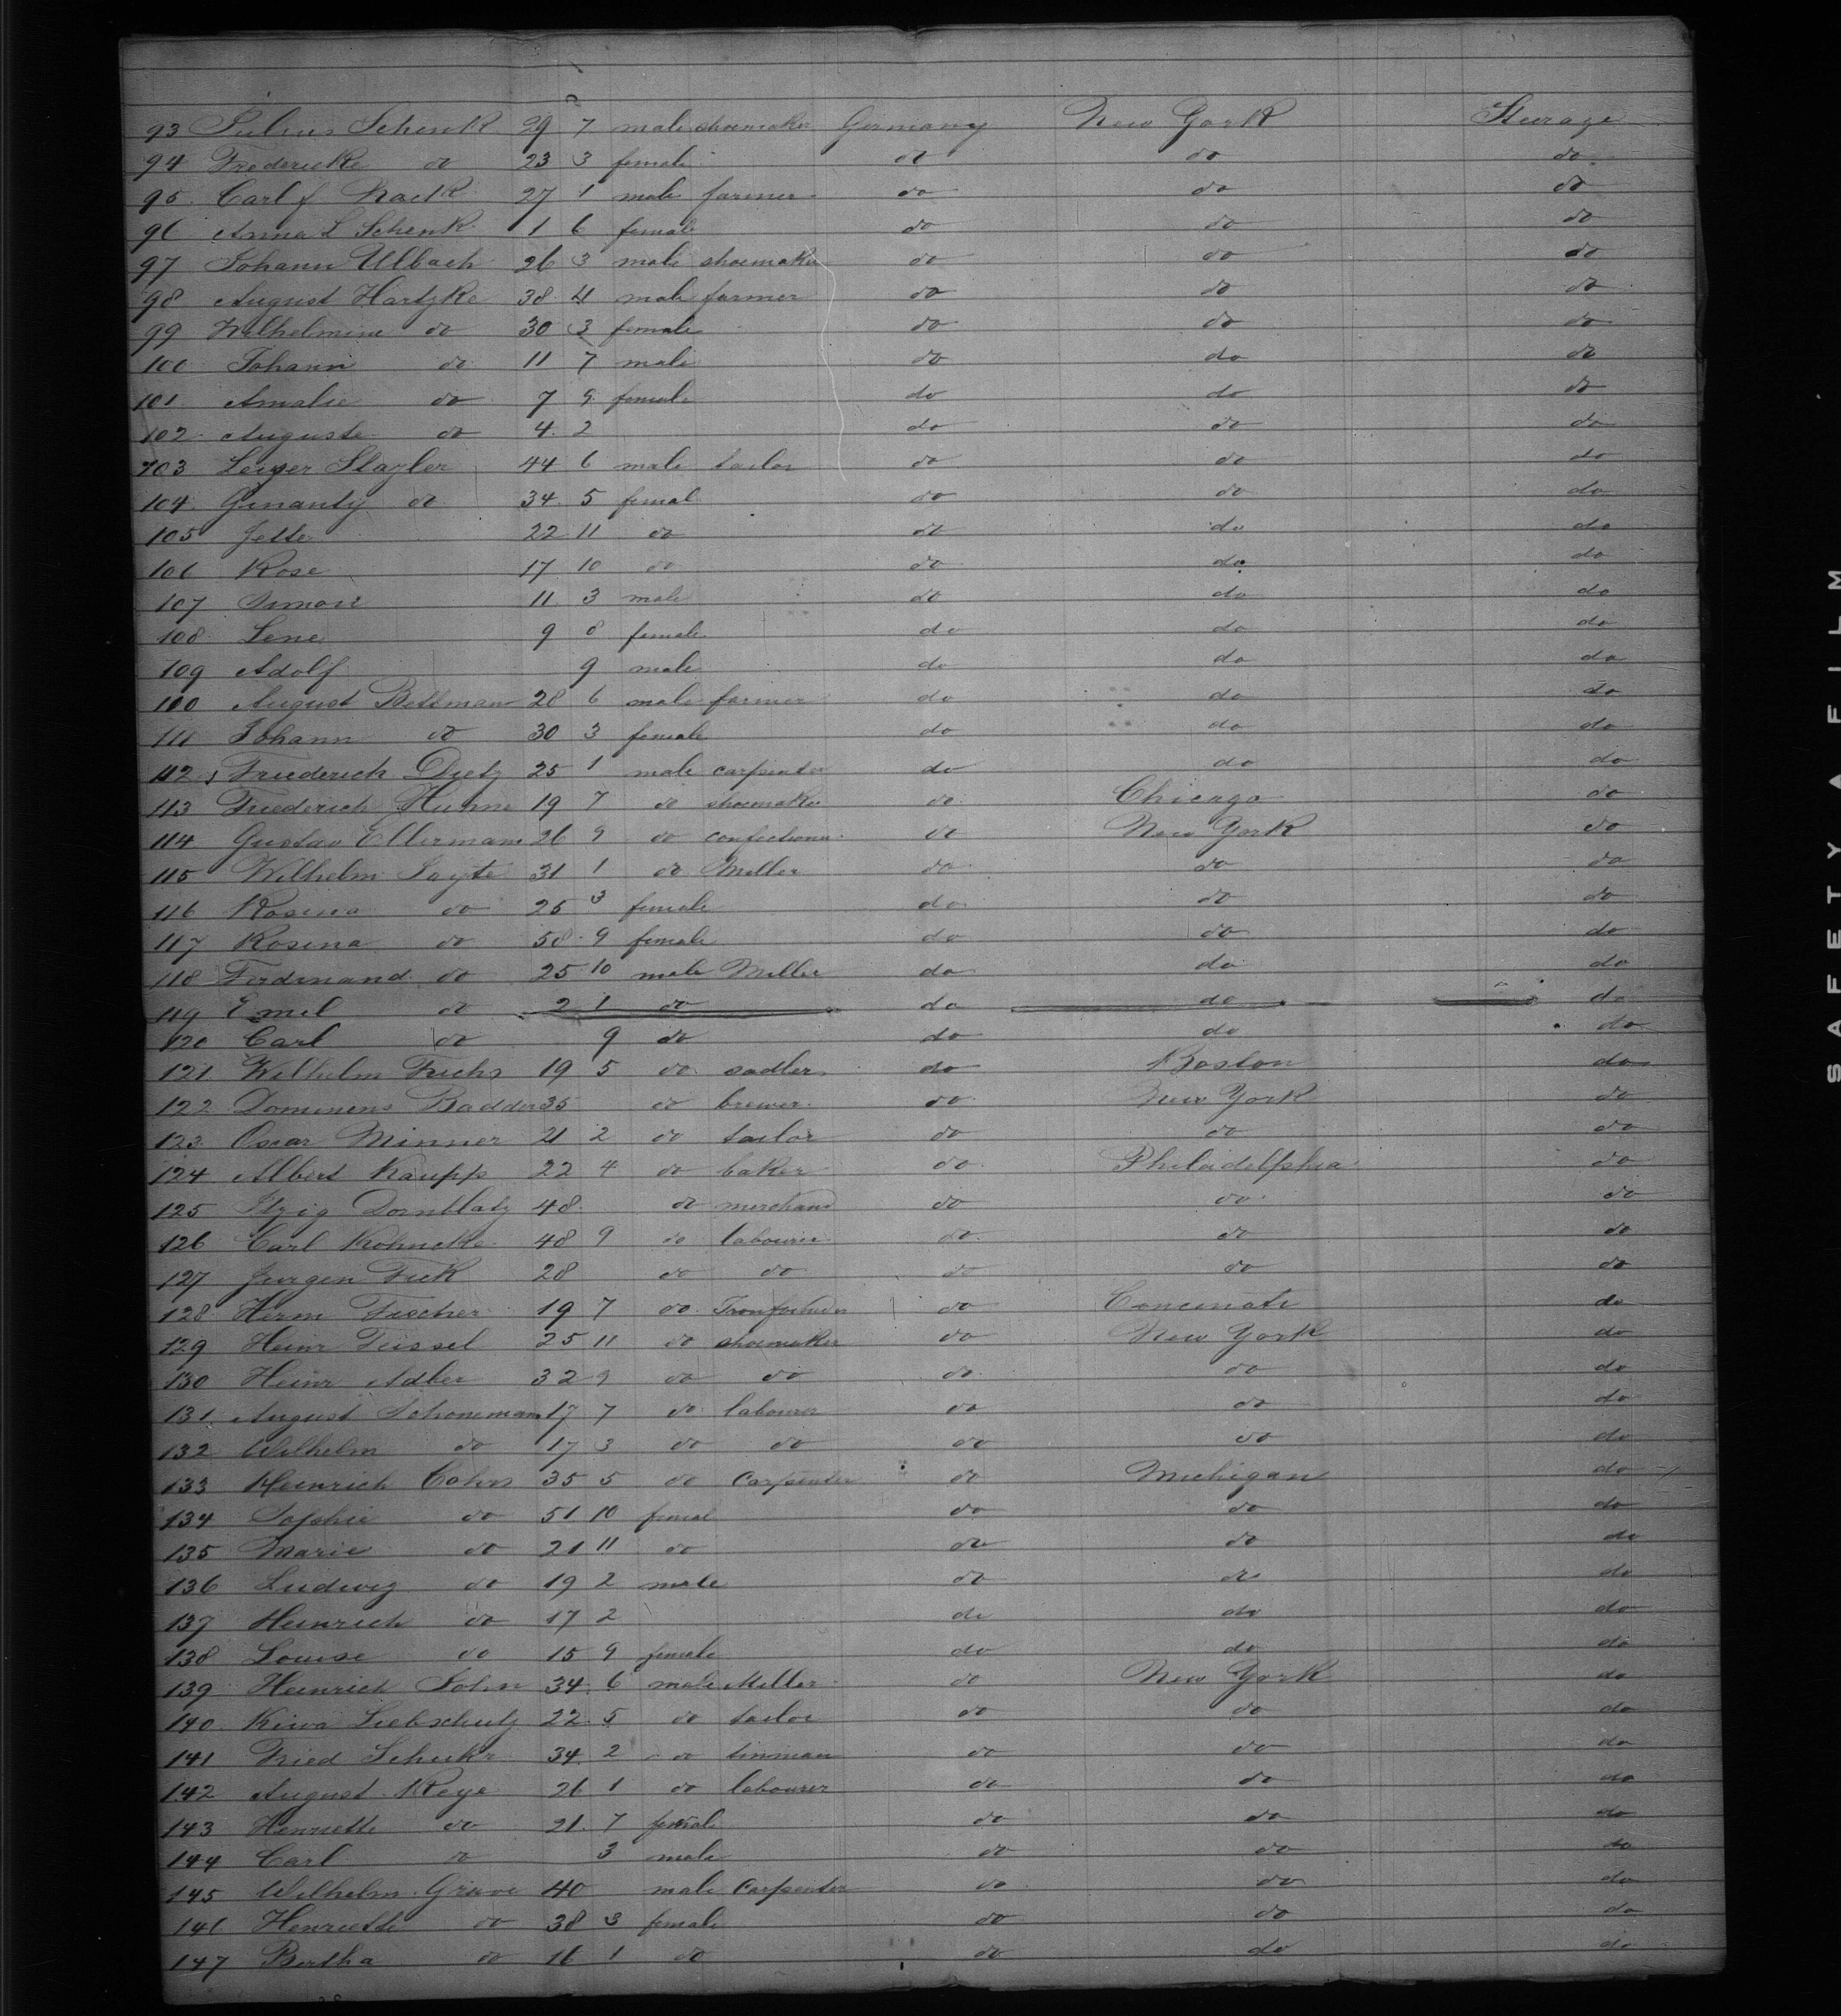 93 Julius Schenk 29 7 male shoemaker Germany New York Steurage
94 Fredericke do 23 3 female do do do
95 Carl f Rack 27 1 male farmer do do do
96 Anna L Schenk 1 6 female do do do
97 Johann Ulbach 26 3 male shoemaker do do do
98 August Hartzke 38 4 male farmer do do do
99 Wilhelmine do 30 3 female do do do
100 Johann do 11 7 male do do do
101 Amalie do 7 9 female do do do
102 Auguste do 4 2 do do do
103 Leiser Slazler 44 6 male tailor do do do
104 do 34 5 femal do do do
105 Jette 22 11 do do do do
106 Rose 17 10 do do do do
107 Simon 11 3 male do do do
108 Lene 9 8 female do do do
109 Adolf 9 male do do do
110 August Bettman 28 6 male farmer do do do
111 Johann do 30 3 female do do do
112 Friederich Dietz 25 1 male carpenter do do do
113 Friederich Hume 19 7 do shoemaker do Chicago do
114 Gustav Ellermann 26 9 do confectioner do New York do
115 Wilhelm 31 1 do Miller do do do
116 Rosina do 25 3 female do do do
117 Rosina do 58 9 female do do do
118 Ferdinand do 25 10 male Miller do do do
119 Emil do 2 1 do do do do
120 Carl do 9 do do do do
121 Wilhelm Fuchs 19 5 do sadler do Boston do
122 Domineus Badder 35 do brewer do New York do
123 Oscar Minner 21 2 do tailor do do do
124 Albert Kaupp 22 4 do baker do Philadelphia do
125 Itzig Dornblatz 48 do merchand do do do
126 Carl Kohncke 48 9 do labourer do do do
127 Jurgen Fick 28 do do do do do
128 Herm Fischer 19 7 do do Concinati do
129 Heinr Teissel 25 11 do shoemaker do New York do
130 Heinr Adler 32 9 do do do do do
131 August Schoneman 17 7 do labourer do do do
132 Wilhelm do 17 3 do do do do do
133 Heinrich Cohrs 35 5 do Carpenter do Michigan do
134 Sophie do 51 10 femal do do do
135 Marie do 21 11 do do do do
136 Ludwig do 19 2 male do do do
137 Heinrich do 17 2 do do do
138 Louise do 15 9 female do do do
139 Heinrich John 34 6 male Miller do New York do
140 Kiwa Liebschutz 22 5 do tailor do do do
141 Fried 34 2 do tinman do do do
142 August Reye 26 1 do labourer do do do
143 Henriette do 21 7 female do do do
144 Carl do 3 male do do do
145 Wilhelm Gruve 40 male Carpenter do do do
146 Henriette do 38 3 female do do do
147 Bertha do 16 1 do do do do
SAFETY FILM